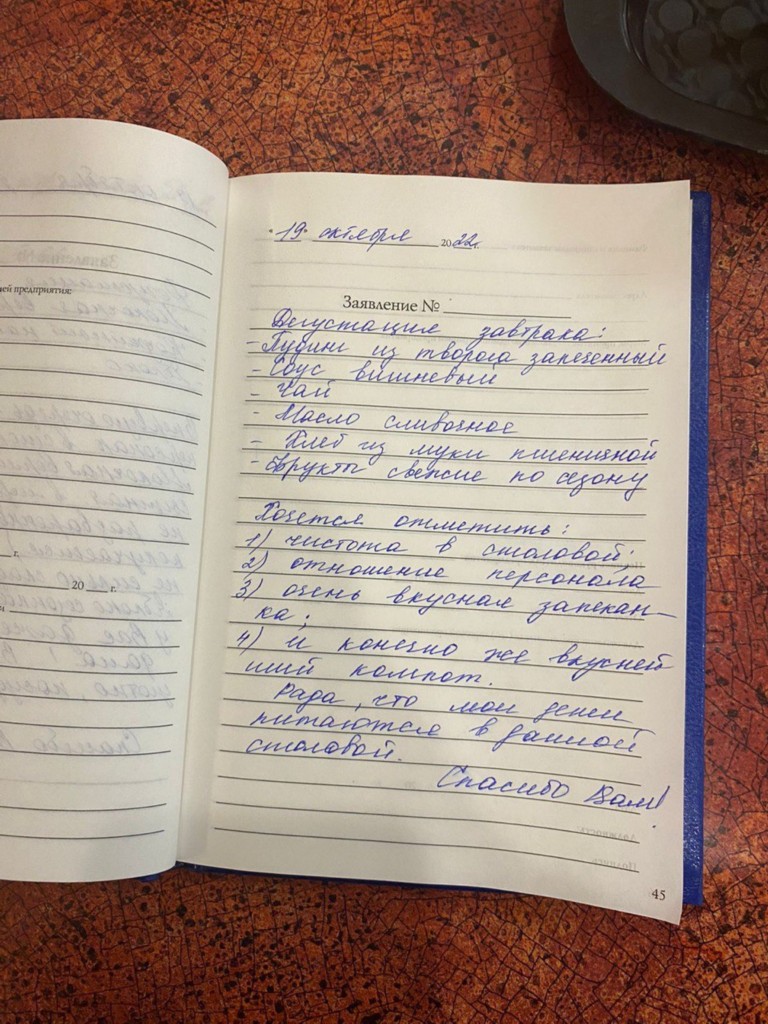 ей предприятия:
г.
20 г.
"19" октября 2022г.
Заявление №
Дегустация завтрака:
- Пудинг из творога запеченный
- Соус вишневый
- Чай
- Масло сливочное
- Хлеб из муки пшеничной
- Фрукты свежие по сезону
Хочется отметить:
1) чистота в столовой;
2) отношение персонала
3) очень вкусная запекан-
ка;
4) и конечно же вкусней
ший компот.
Рада, что мои дети
питаются в данной
столовой.
Спасибо Вам!
45